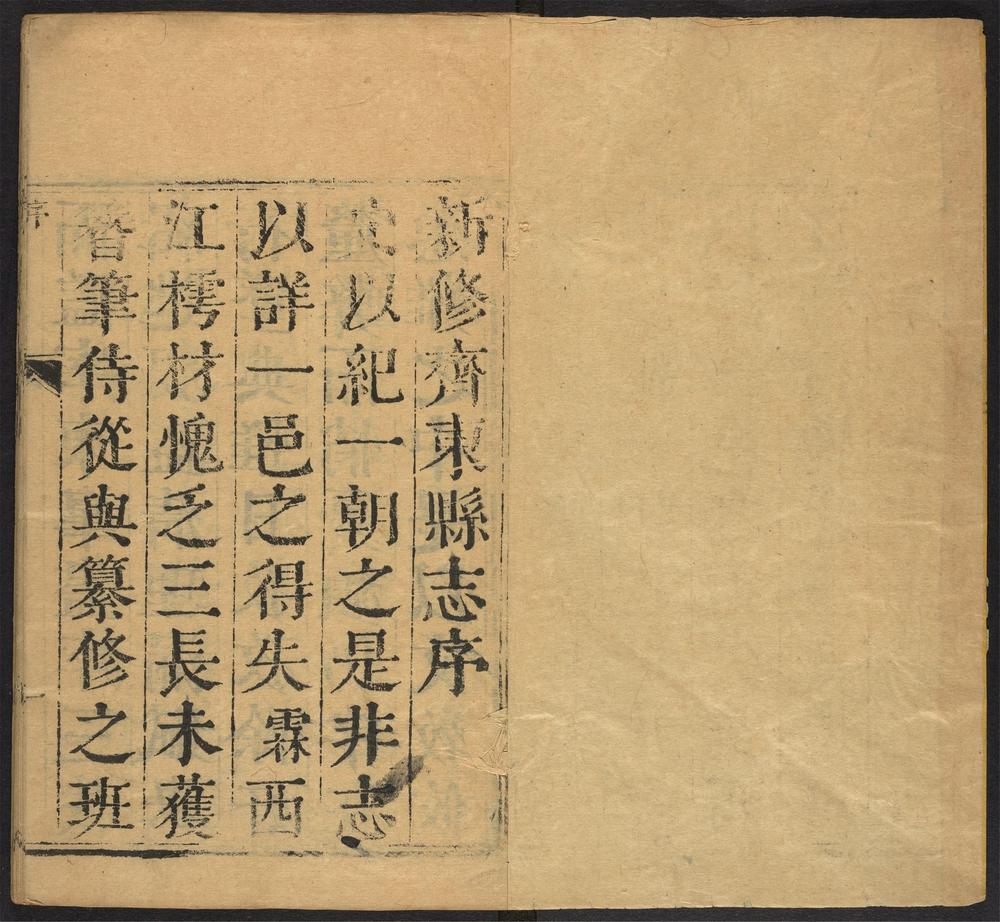 新修齊東縣志序
史以紀一朝之是非志
以詳一邑之得失霖西
江樗材愧乏三長未獲
簪筆侍從與纂修之班
序
一